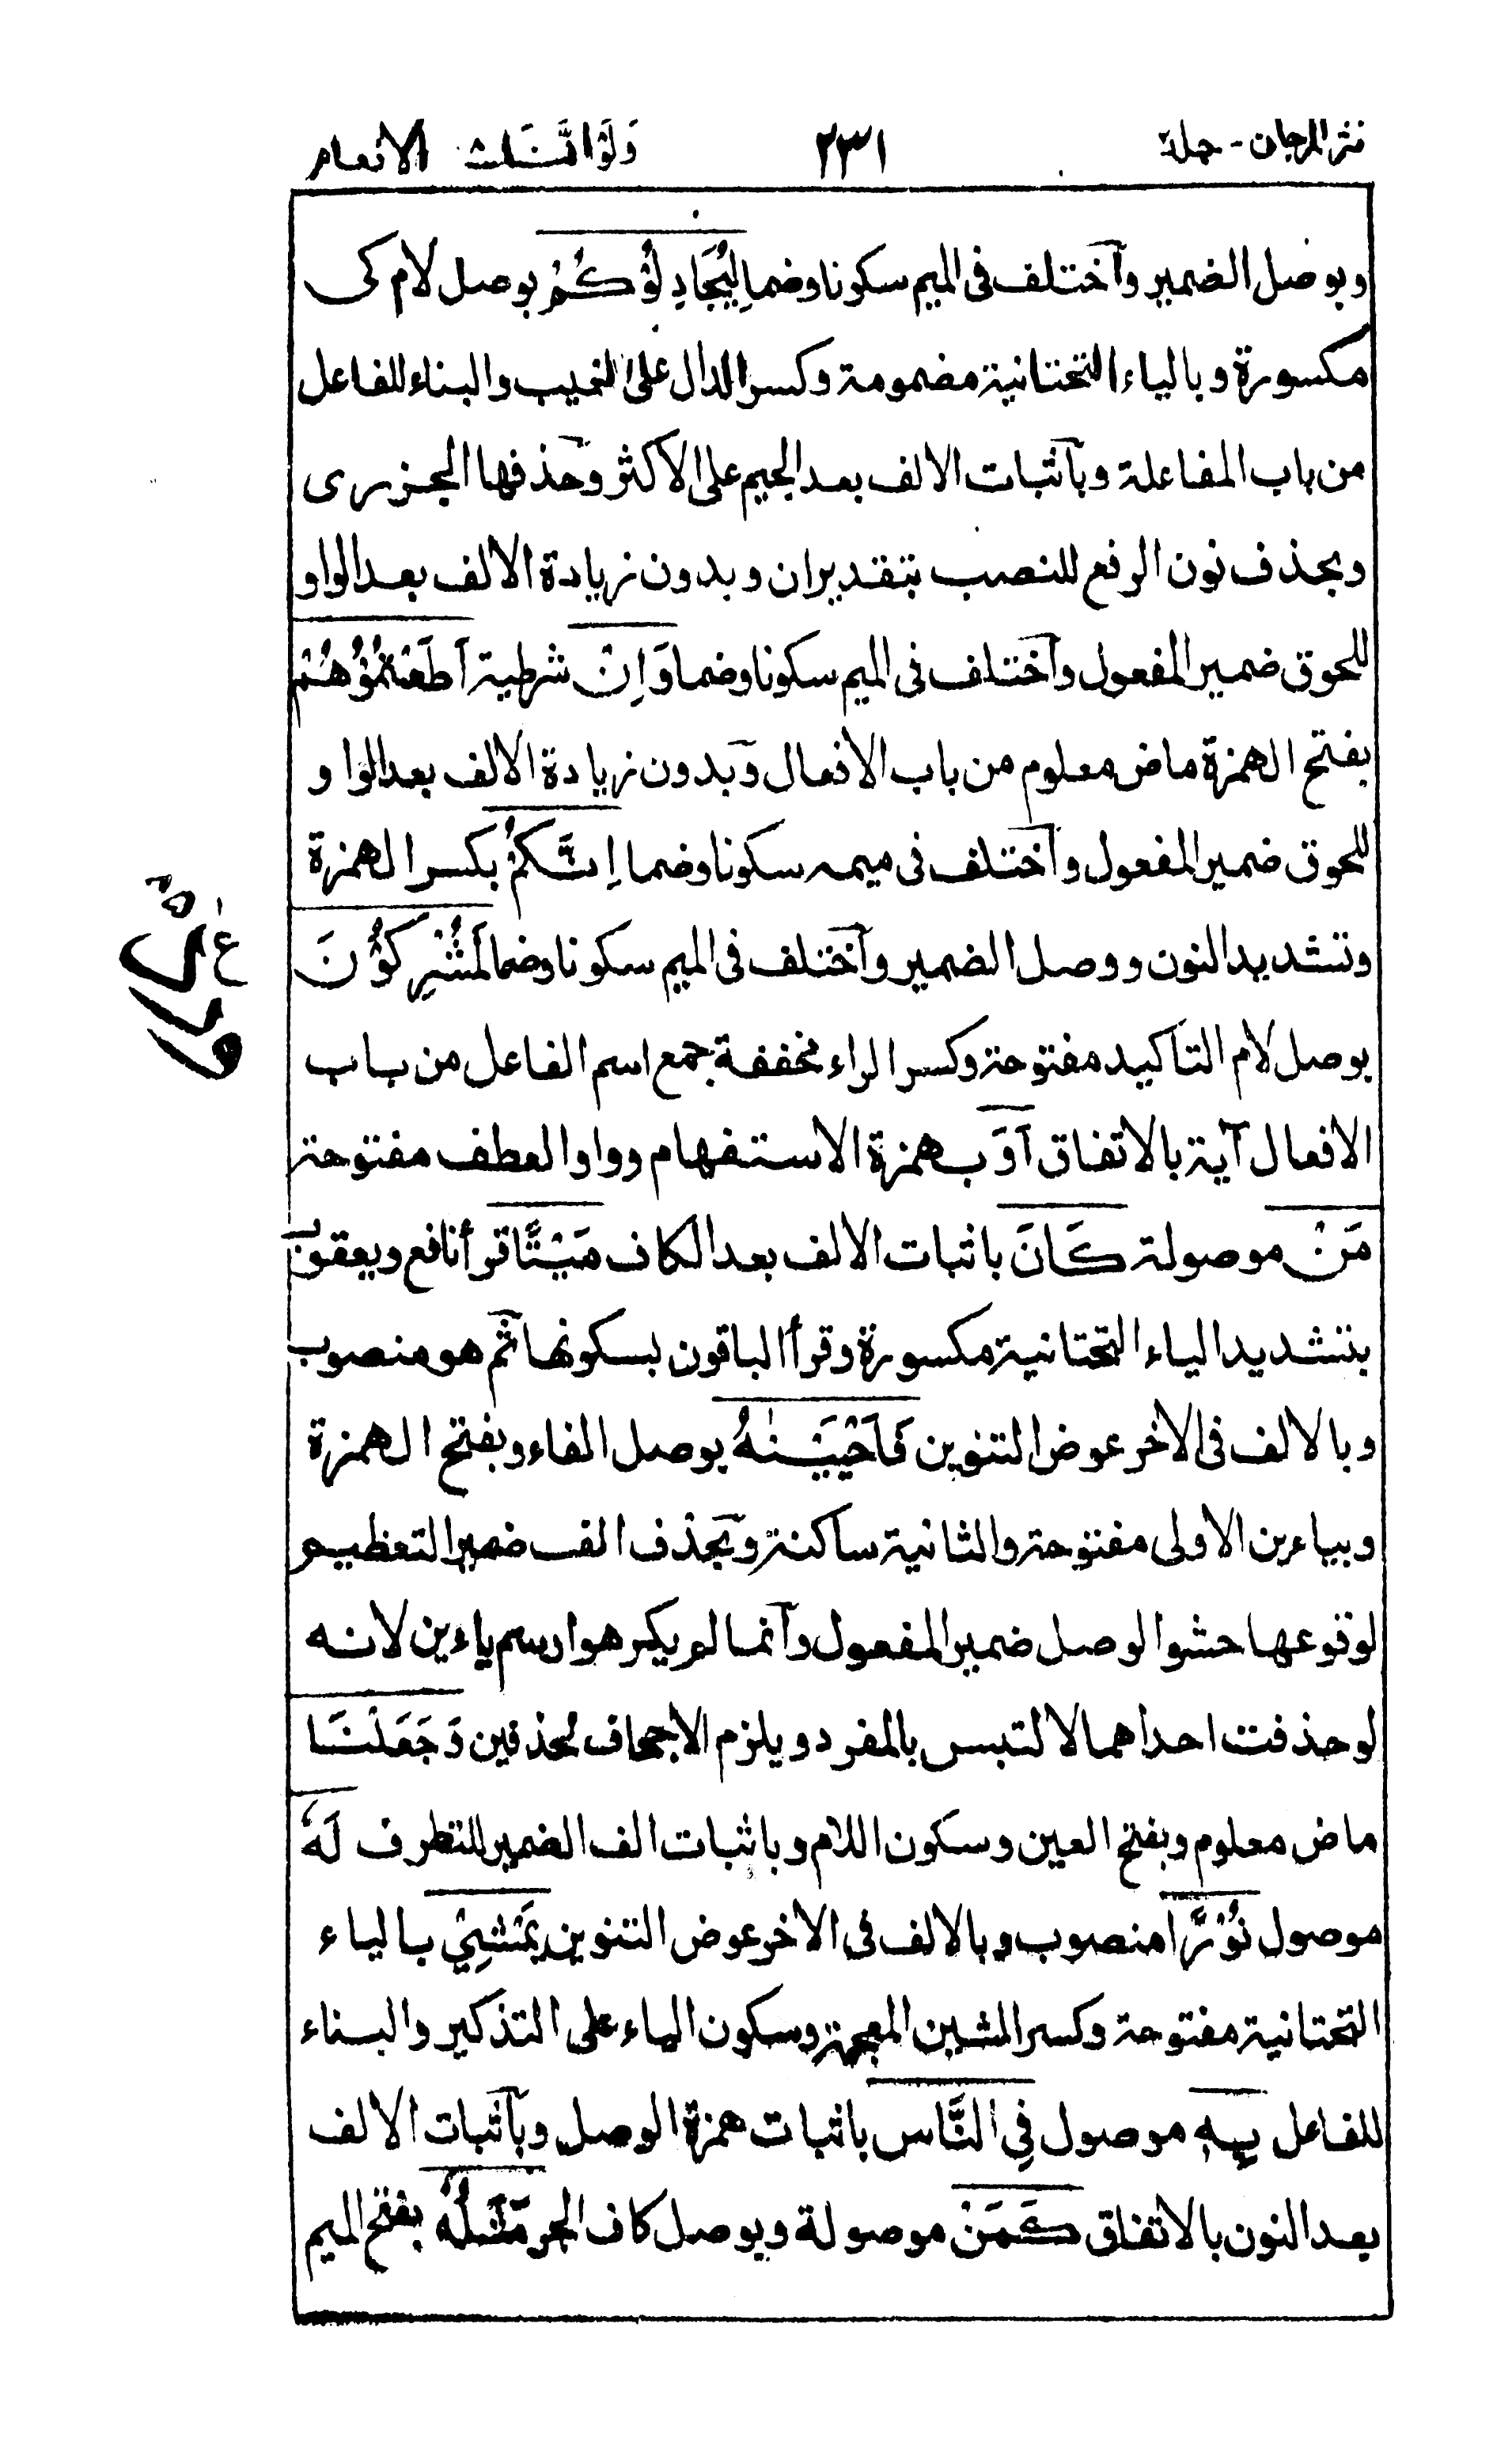 نثر المرجان - جملة ٢٣١ وَلَوْ اَنَّنَا الانعام
وبوصل الضمير وآختلف فى الميم سكونا وضما لِيُجَادِلُوْكُمْ بوصل لام كى
مكسورة وبالياء التحتانية مضمومة وكسر الدال على الغيب والبناء للفاعل
من باب المفاعلة وبآثبات الالف بعد الجيم على الاكثر وحذفها الجزرى
وبحذف نون الرفع للنصب بتقدير ان وبدون زيادة الالف بعد الواو
للحوق ضمير المفعول وآختلف فى الميم سكونا وضما وَاِنْ شرطية اَطَعْتُمُوْهُمْ
بفتح الهمزة ماض معلوم من باب الافعال وبدون زيادة الالف بعد الواو
للحوق ضمير المفعول وآختلف فى ميمه سكونا وضما اِنَّكُمْ بكسر الهمزة
وتشديد النون ووصل الضمير وآختلف فى الميم سكونا وضما لَمُشْرِكُوْنَ
بوصل لام التاكيد مفتوحة وكسر الراء مخففة جمع اسم الفاعل من باب
الافعال آية بالاتفاق اَوَ بهمزة الاستفهام وواو العطف مفتوحة
مَنْ موصولة كَانَ باثبات الالف بعد الكاف مَيْتًا قرأ نافع ويعقوب
بتشديد الياء التحتانية مكسورة وقرأ الباقون بسكونها ثم هو منصوب
وبالالف فى الاخر عوض التنوين فَاَحْيَيْنٰهُ بوصل الفاء وبفتح الهمزة
وبياءين الاولى مفتوحة والثانية ساكنة وبحذف الف ضمير التعظيم
لوقوعها حشوا لوصل ضمير المفعول وآنما لم يكرهوا رسم ياءين لانه
لو حذفت احداهما لالتبس بالمفرد ويلزم الاجحاف لحذفين وَجَعَلْنَا
ماض معلوم وبفتح العين وسكون اللام وباثبات الف الضمير للتطرف لَهٗ
موصول نُوْرًا منصوب وبالالف فى الاخر عوض التنوين يَمْشِيْ بالياء
التحتانية مفتوحة وكسر الشين المعجمة وسكون الياء على التذكير والبناء
للفاعل بِهٖ موصول فِي النَّاسِ باثبات همزة الوصل وبآثبات الالف
بعد النون بالاتفاق كَمَنْ موصولة وبوصل كاف الجر مَّثَلُهٗ بفتح الميم